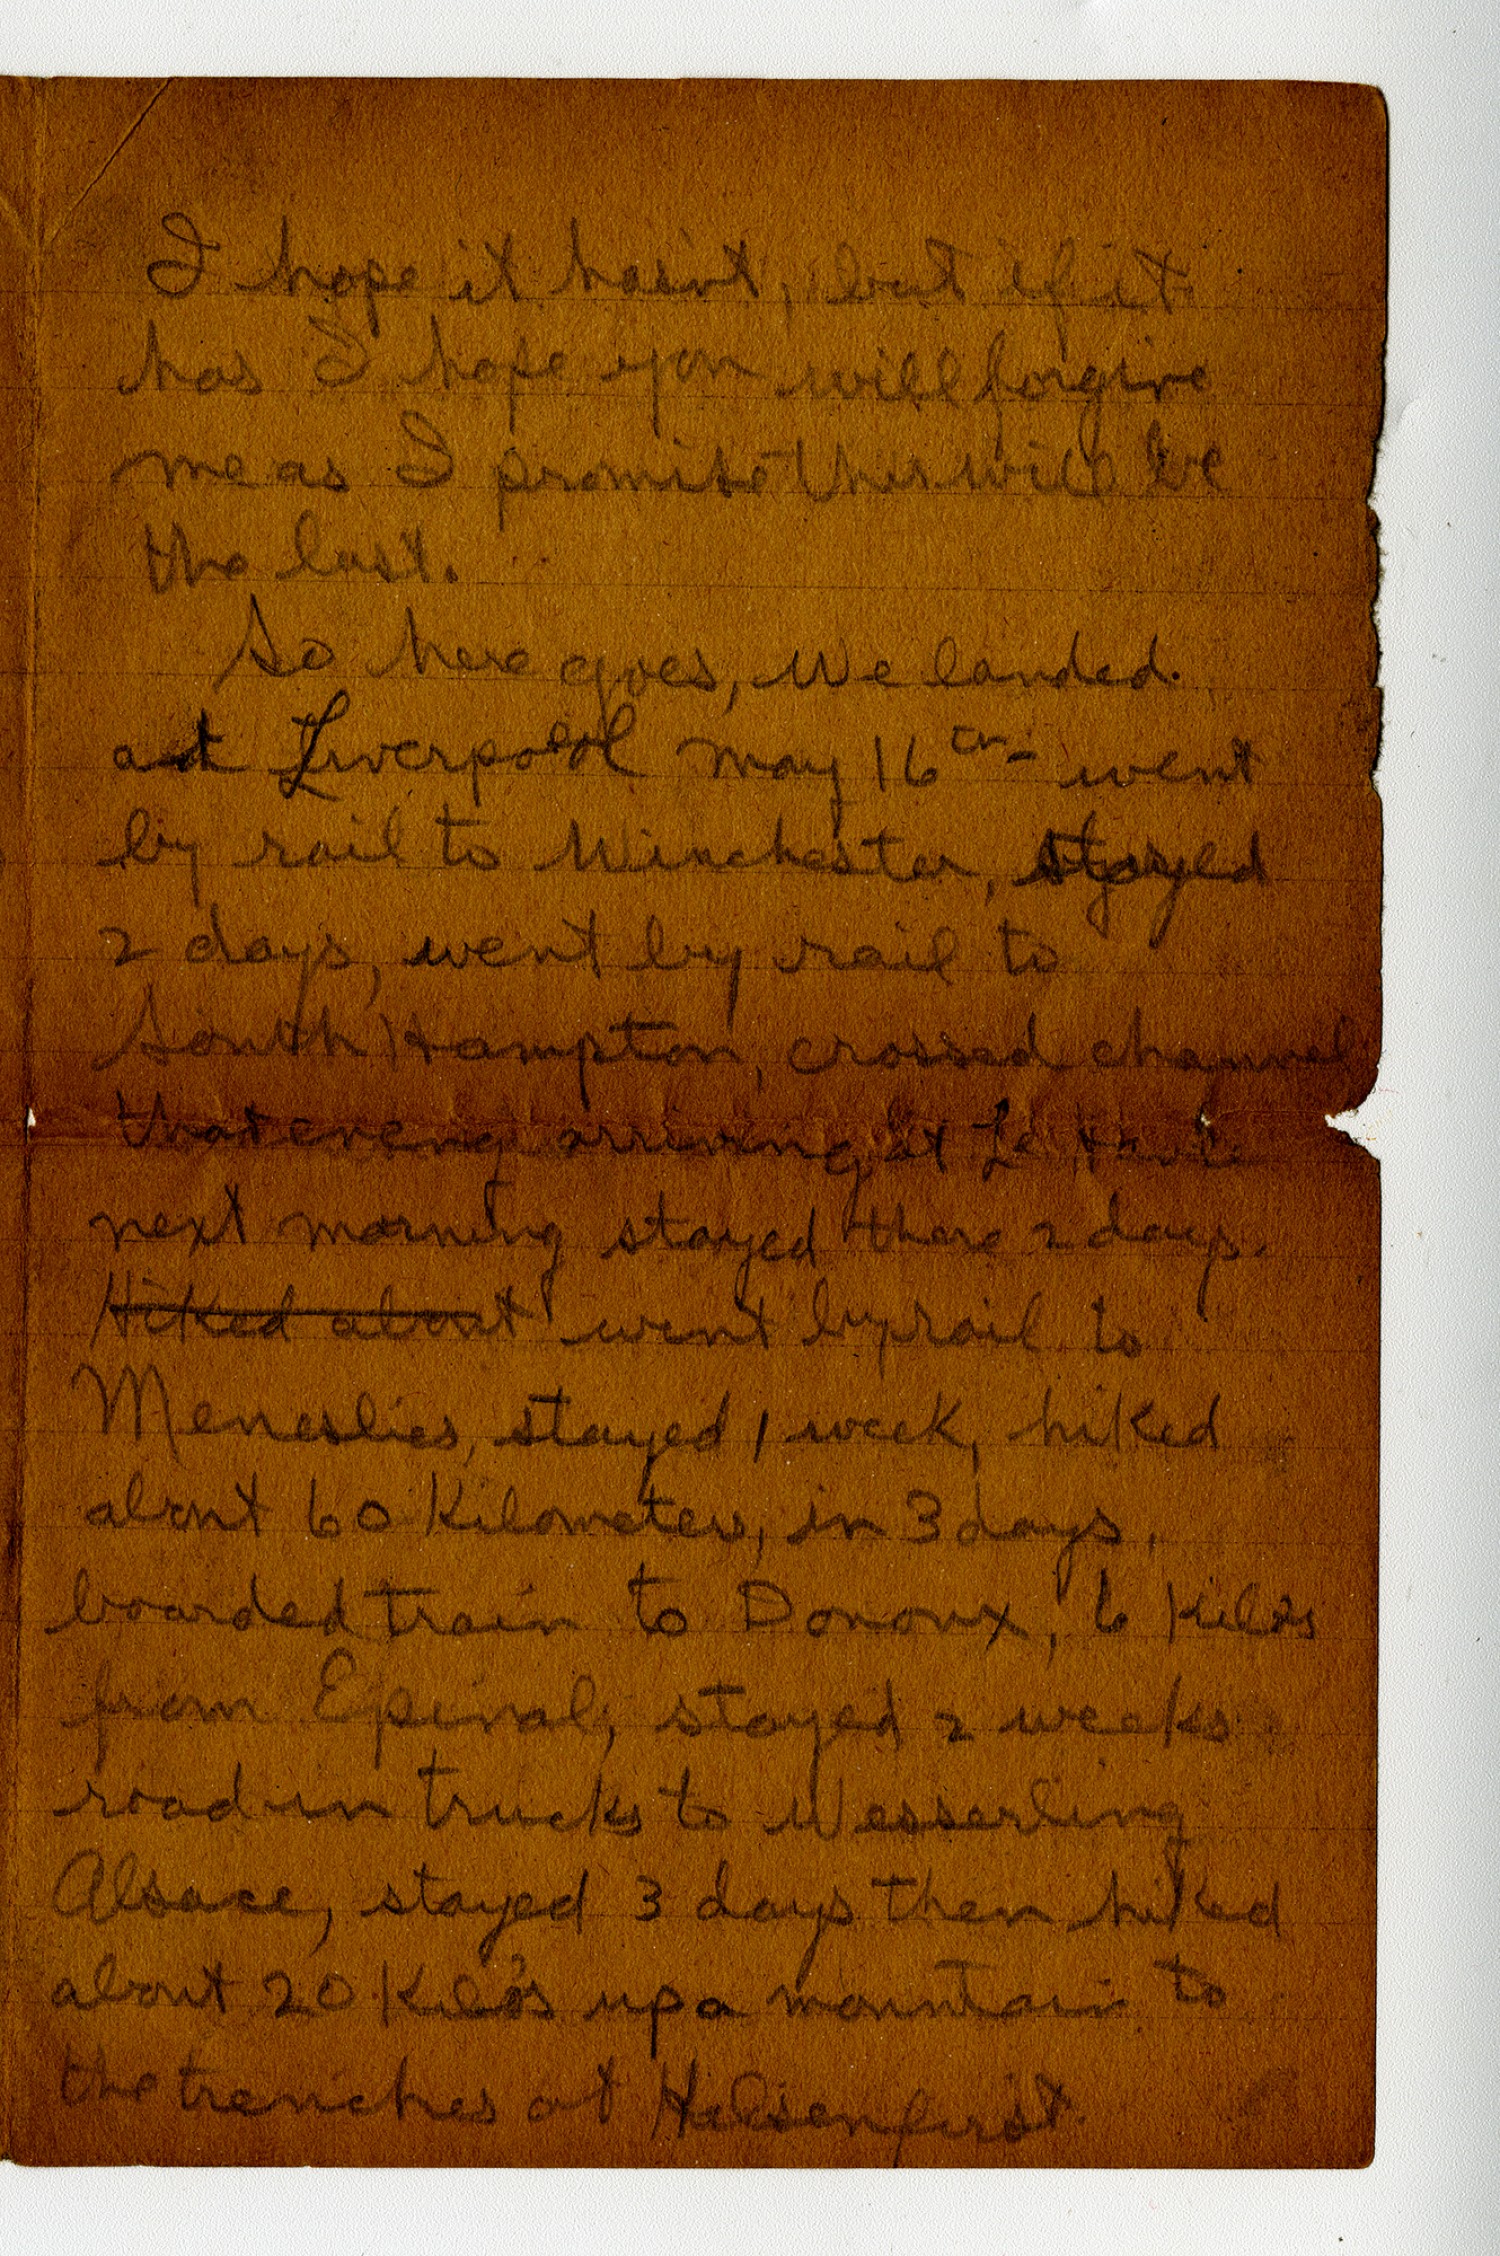 I hope it hasn't, but if it
has I hope you will forgive
me as I promise this will be
the last.
So here goes, We landed
at Liverpool May 16th - went
by rail to Winchester, stayed
2 days, went by rail to
South Hampton, crossed channel
that eveng arriving at Le Havre
next morning stayed there 2 days.
Hiked about went by rail to
Meneslies, stayed 1 week, hiked
about 60 Kilometers, in 3 days,
boarded train to Donoux, 6 Kilo's
from Epinal, stayed 2 weeks
road in trucks to Wesserling
Alsace, stayed 3 days then hiked
about 20 Kilo's up a mountain to
the trenches at Hilsenfirst.